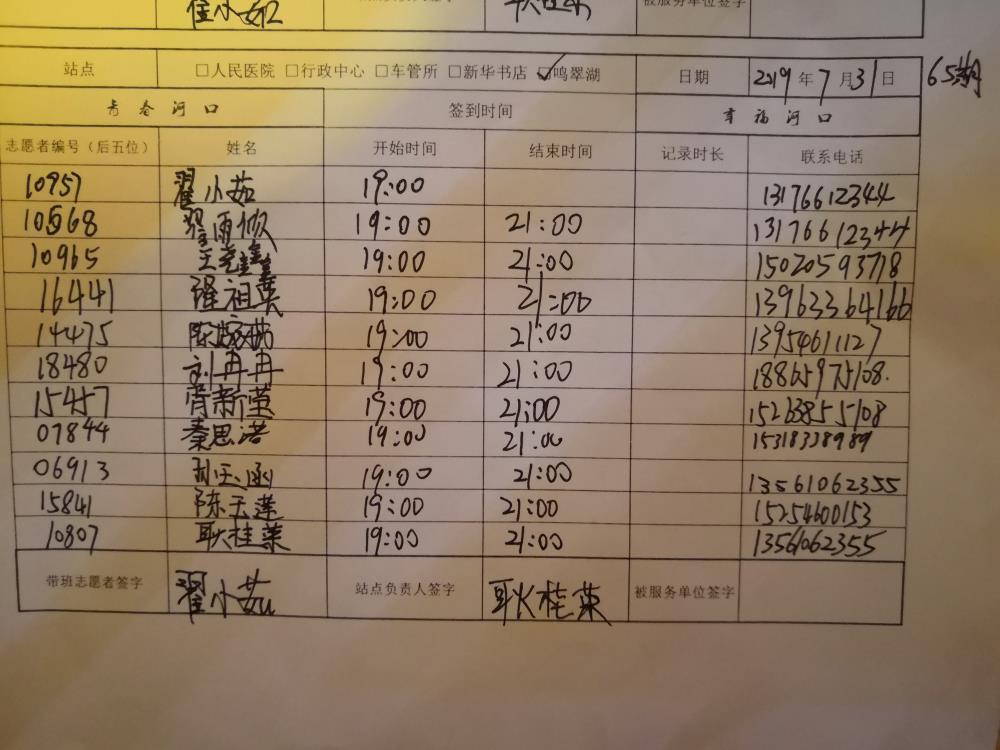 翟小茹
站点 □人民医院 □行政中心 □车管所 □新华书店 ☑鸣翠湖 日期 2019年7月31日 65期
青春河口 签到时间 幸福河口
志愿者编号（后五位） 姓名 开始时间 结束时间 记录时长 联系电话
10957 翟小茹 19:00 13176612344
10568 19:00 21:00 13176612344
10965 19:00 21:00 15020593718
16441 翟祖英 19:00 21:00 13963364166
14475 19:00 21:00 13954611127
18480 刘冉冉 19:00 21:00 18865975108.
15457 19:00 21:00 15263855108
07844 秦思洁 19:00 21:00 15318338989
06913 孙玉函 19:00 21:00 13561062355
15841 陈玉莲 19:00 21:00 15254600153
10807 耿桂荣 19:00 21:00 13561062355
带班志愿者签字 翟小茹 站点负责人签字 耿桂荣 被服务单位签字